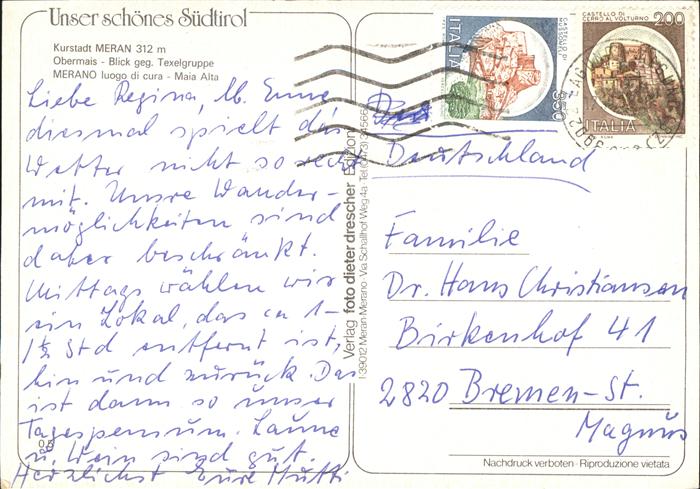 Unser schönes Südtirol
Kurstadt MERAN 312 m
Obermais - Blick geg. Texelgruppe
MERANO luogo di cura - Maia Alta
Liebe Regina, lb. Enno
diesmal spielt das
Wetter nicht so recht
mit. Unsre Wander-
möglichkeiten sind
daher beschränkt.
Mittags wählen wir
ein Lokal, das ca 1-
1½ Std entfernt ist,
hin und zurück. Das
ist dann so unser
Tagespensum. Laune
u. Wein sind gut.
Herzlichst Eure Mutti
Verlag foto dieter drescher Edizioni
I-39012 Meran Merano · Via Schallhof Weg 4a · Tel.
ITALIA
350
CASTELLO DI
CERRO AL VOLTURNO
200
ITALIA
Deutschland
Familie
Dr. Hans Christiansen
Birkenhof 41
2820 Bremen-St.
Magnus
Nachdruck verboten - Riproduzione vietata